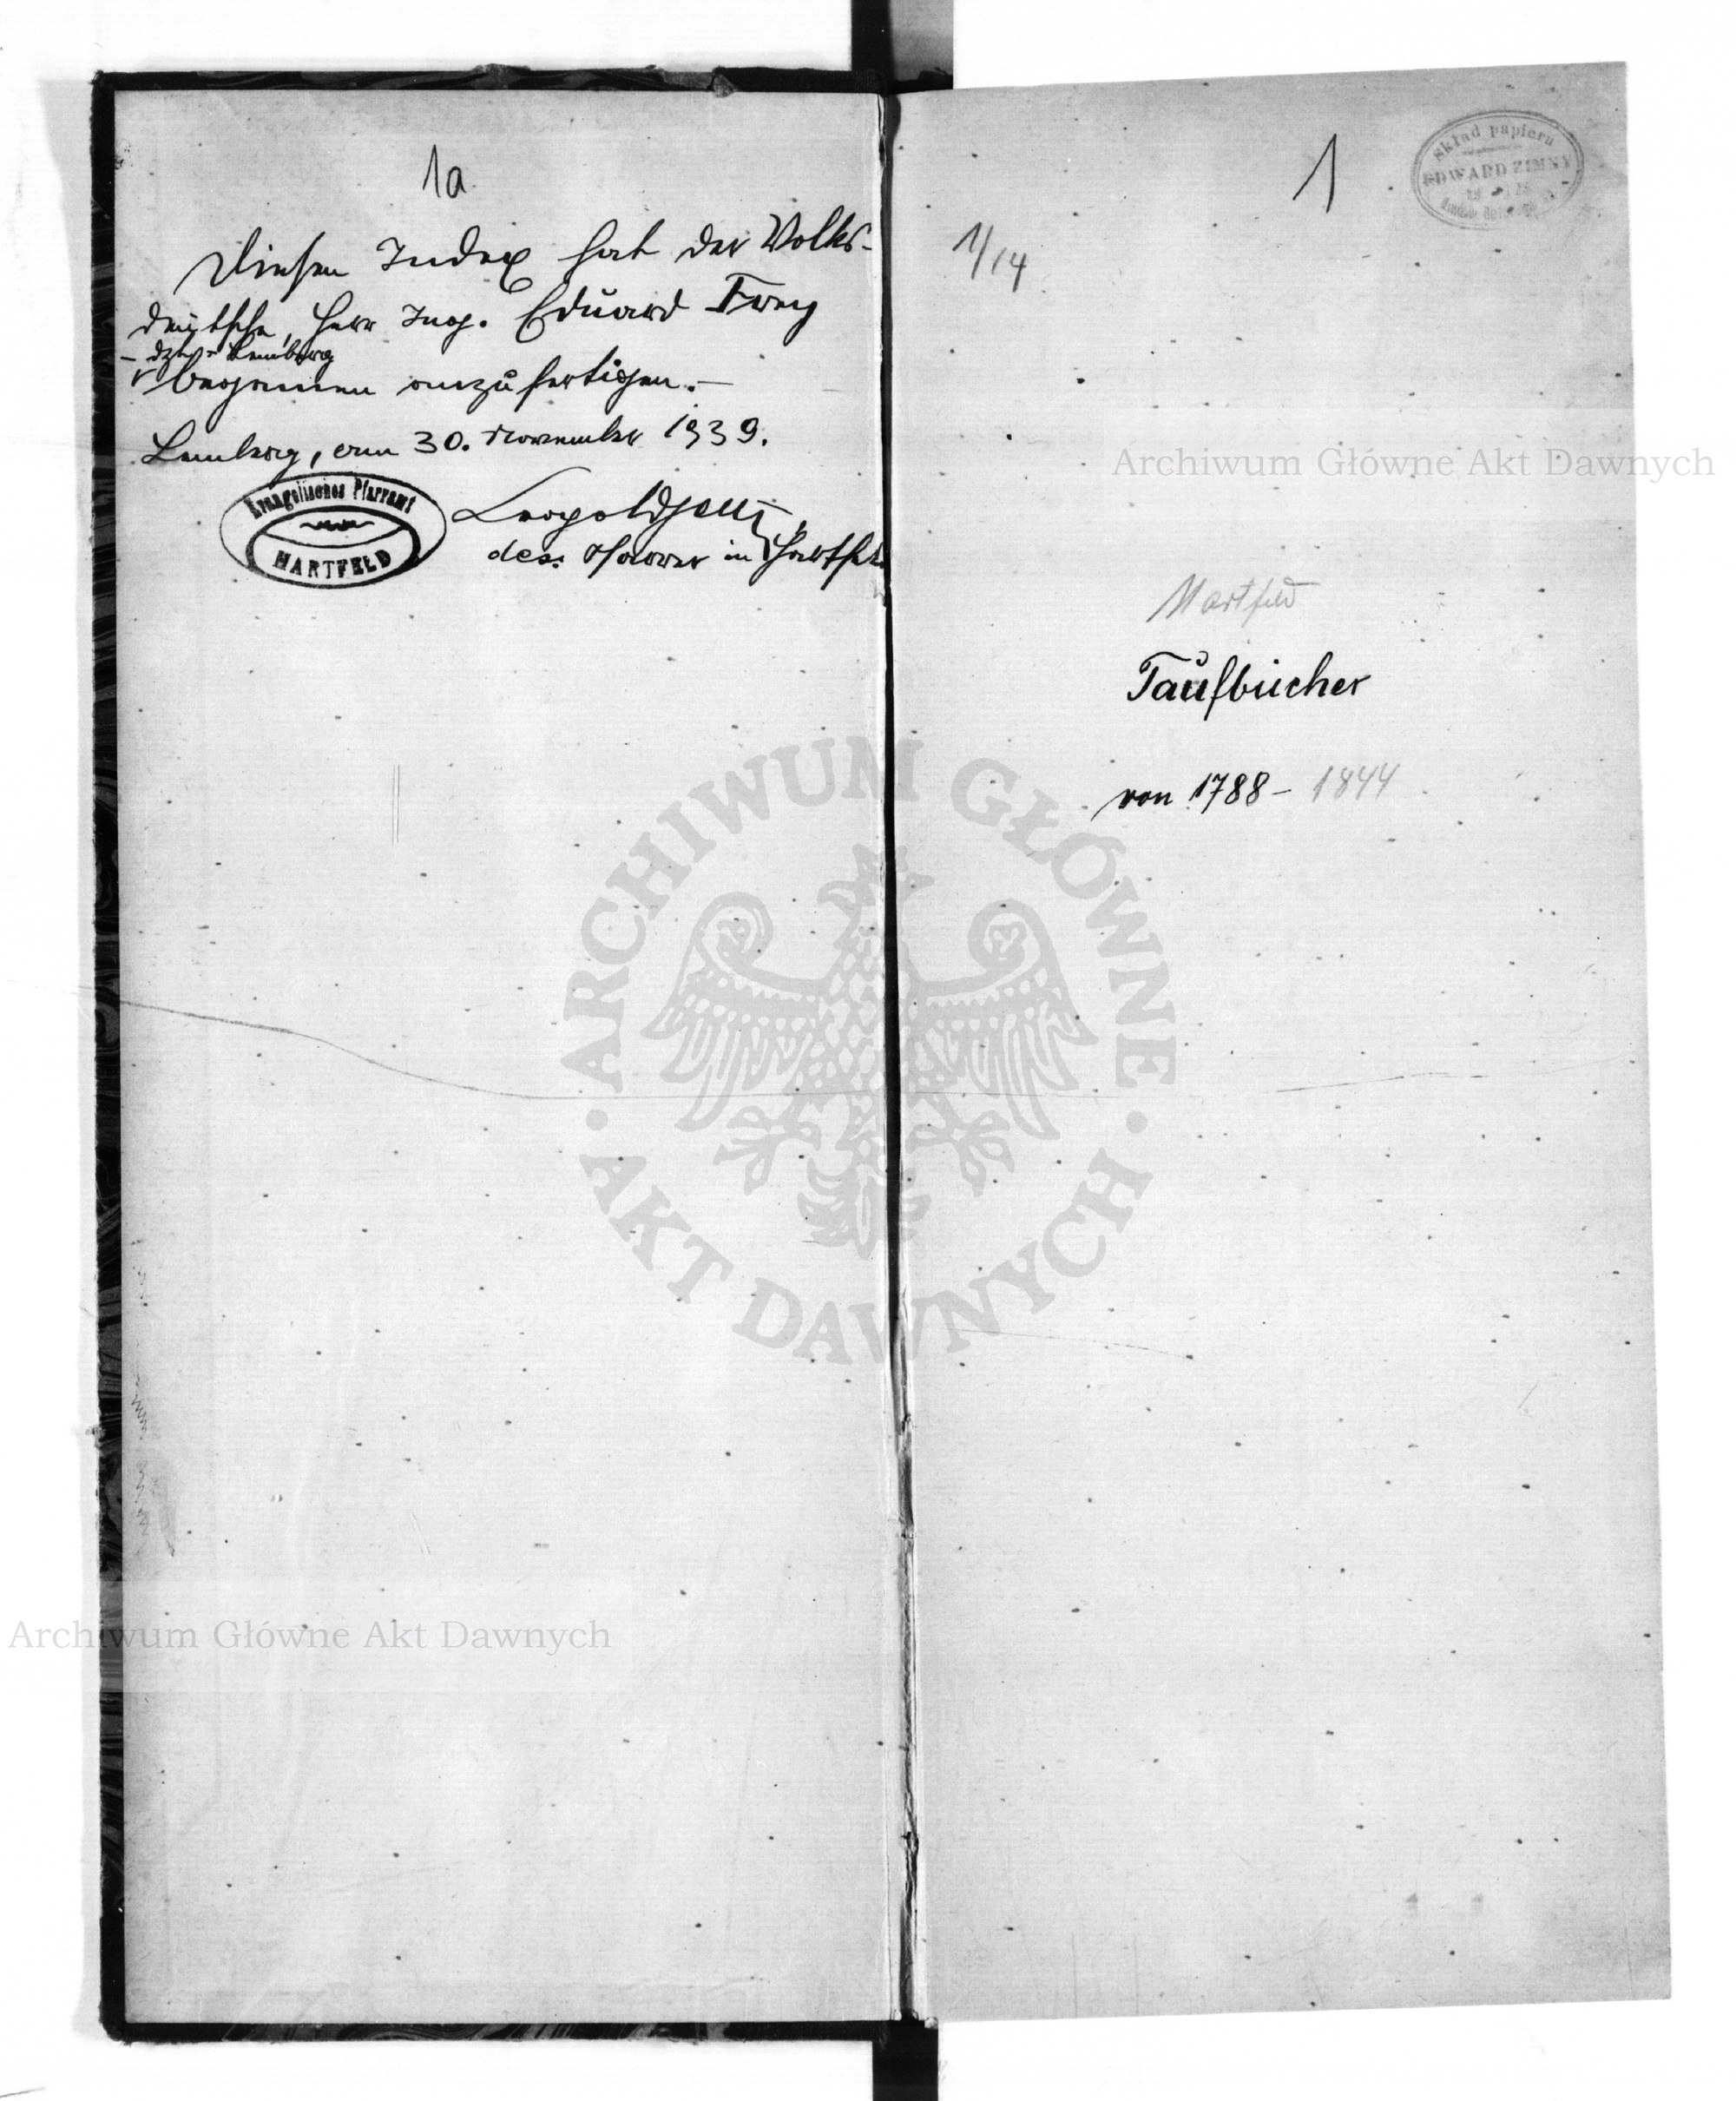 1a
Diesen Index hat der Volks-
deutsche, Herr Ing. Eduard Frey
- dzt. Lemberg
begonnen anzufertigen.-
Lemberg, am 30. November 1939.
Evangelisches Pfarramt
HARTFELD
des. Pfarrer in Hartfeld
1
Skład papieru
EDWARD ZIMNY
1/14
Archiwum Główne Akt Dawnych
Hartfeld
Taufbücher
von 1788 - 1844
ARCHIWUM GŁÓWNE
AKT DAWNYCH
Archiwum Główne Akt Dawnych